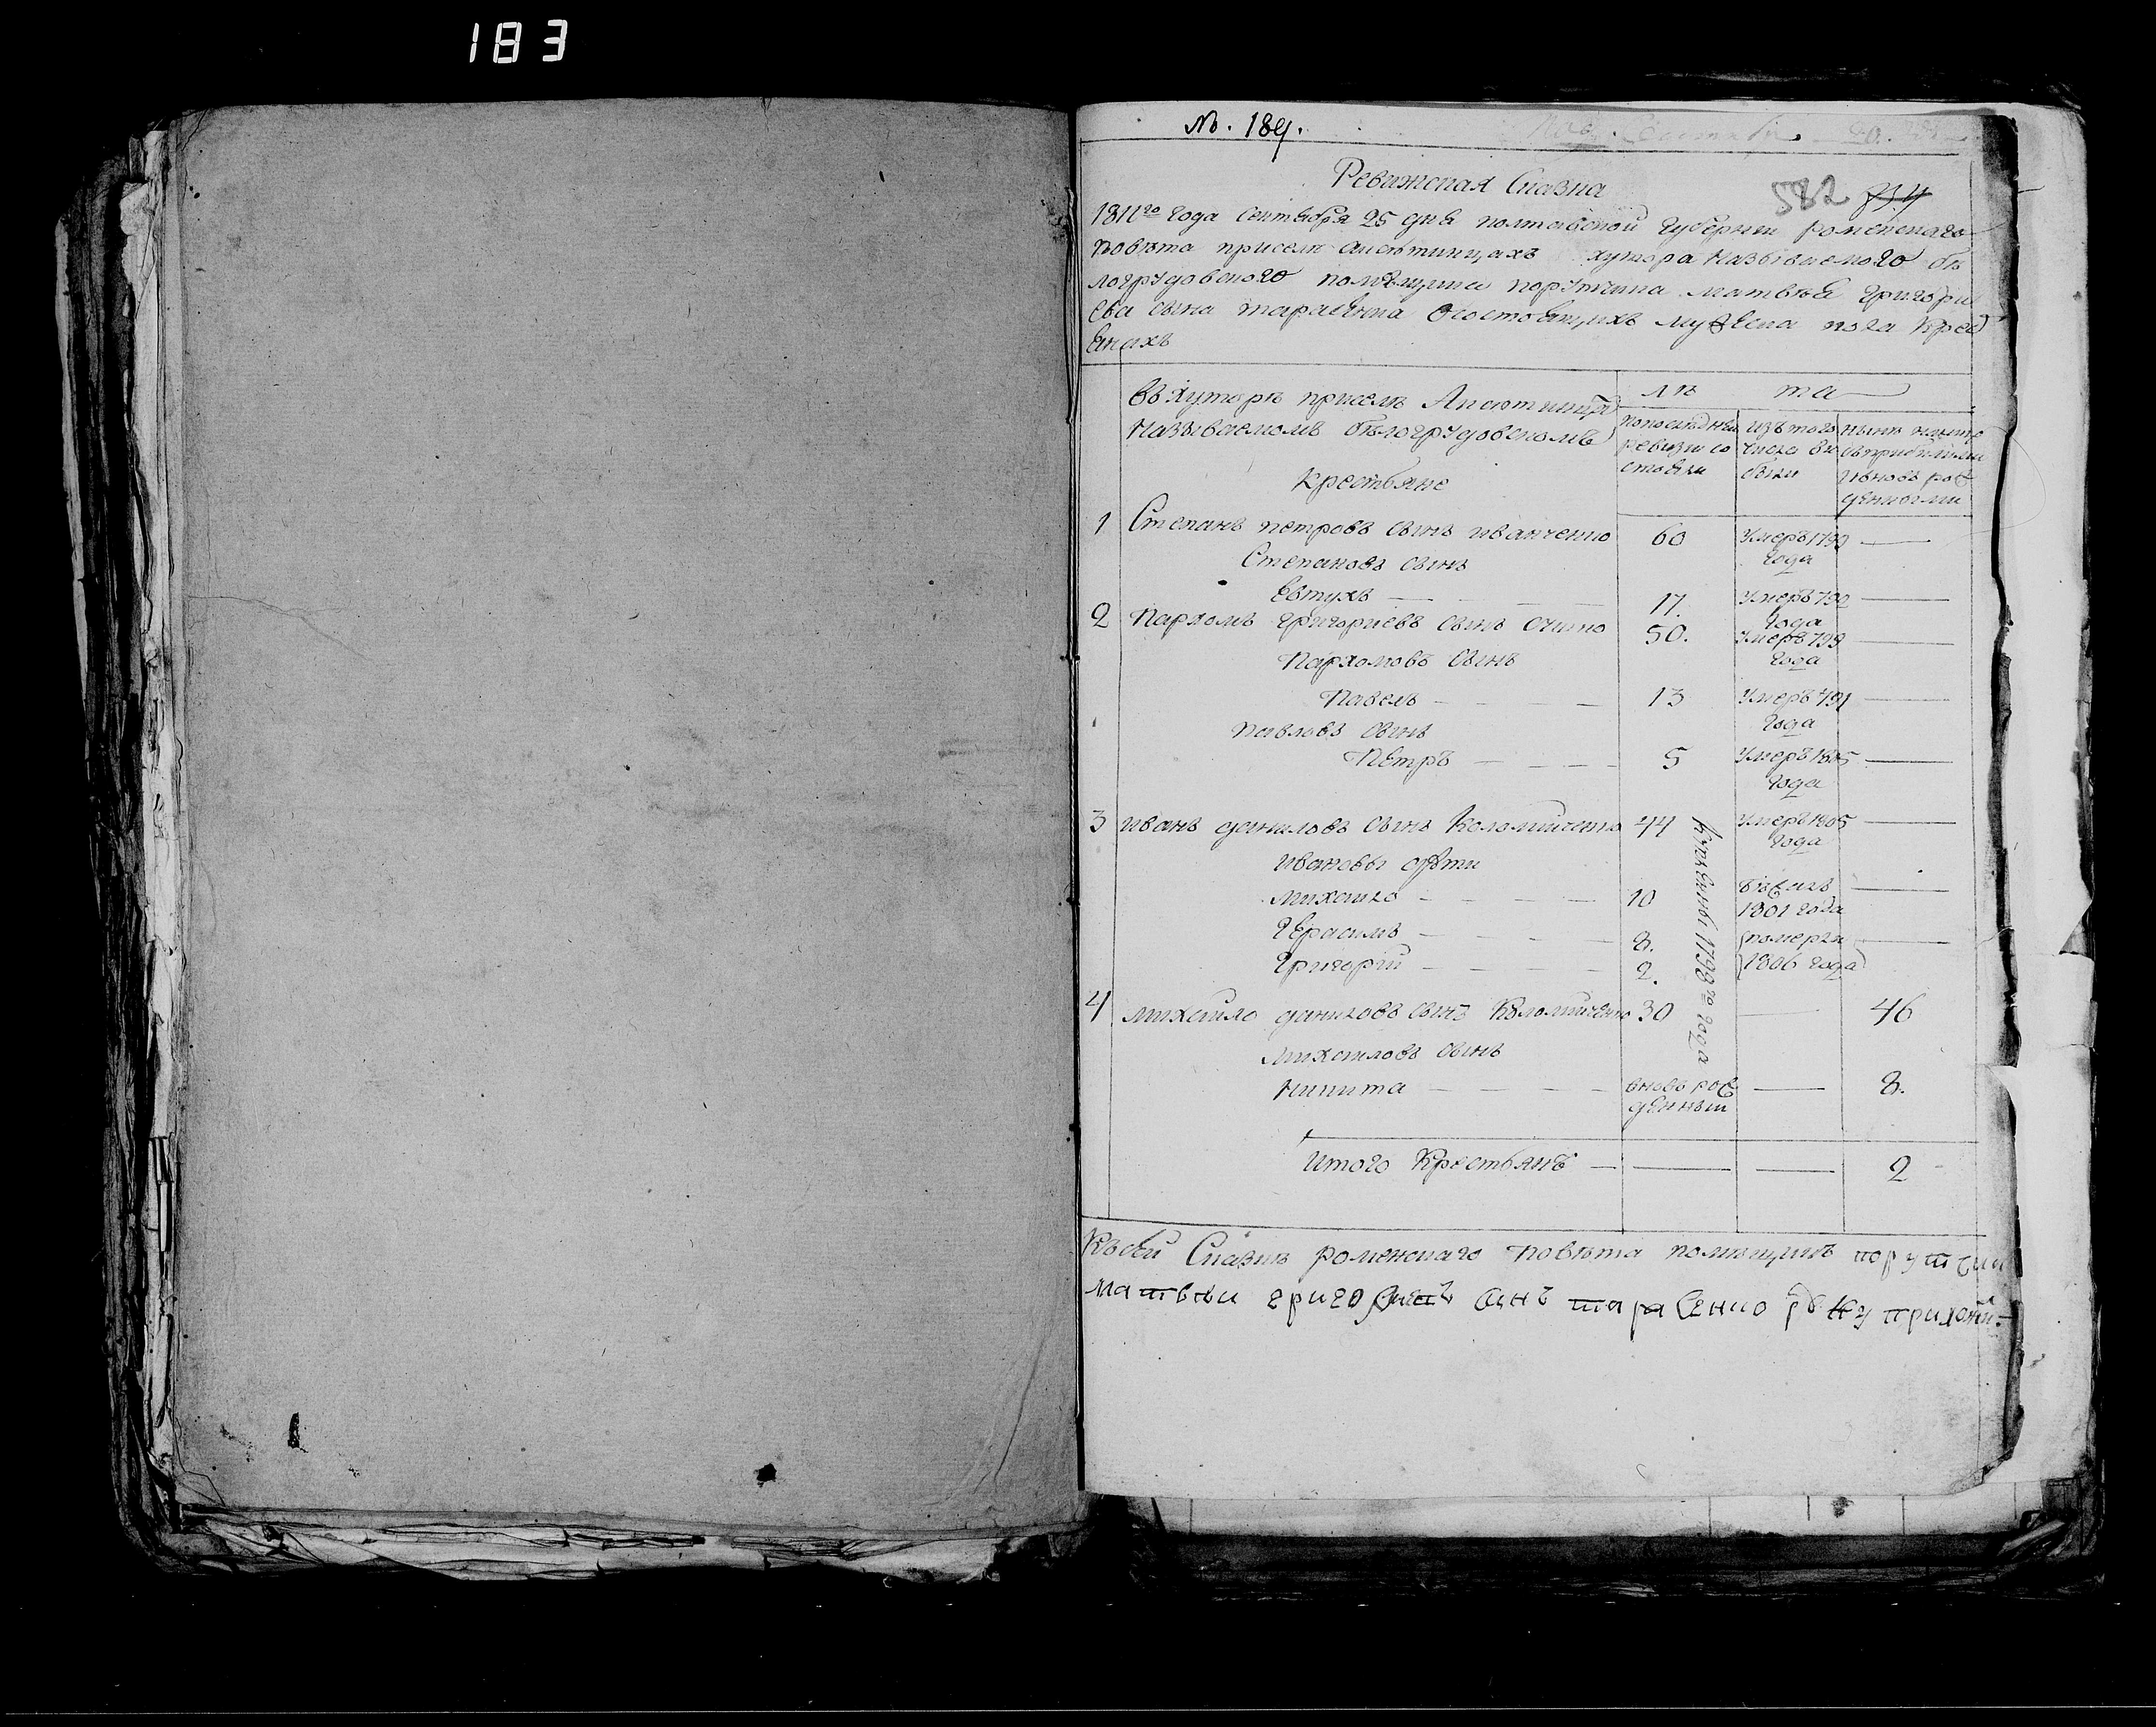 183
№. 189.
582
Ревижская Сказка
1811го года сентября 25 дня полтавской губернии роменскаго
повѣта присели Аксютинцахъ хутора называемого бѣ
логрудовского помѣщика порутчика матвѣя григори
ева сына тарасенка Осостоящихъ мужеска пола крес
янахъ
Въ Хуторѣ приселѣ Аксютинцахъ
называемомъ бѣлогрудовскомъ
крестьяне
лѣ та
попоследней ревизии со стояли
изътого числа вы были
нынѣ налицо
ивновь рож денными
1 Степанъ петровъ сынъ иванченко 60 Умеръ 1799 года —
Степановъ сынъ
Евтухъ — 17. Умеръ 792 года —
2 Пархомъ григориевъ сынъ 50. Умеръ 799 года —
Пархомовъ сынъ
Павелъ — 13 Умеръ 791 года —
Павловъ сынъ
Петръ — 5 Умеръ 1805 года —
3 иванъ даниловъ сынъ Коломийченко 44 Умеръ 1805 года —
ивановы дѣти
михайло — 10 бѣжалъ 1801 года —
Герасимъ — 8. померли —
Григорий — 2. 1806 года
1798го года
4 михайло даниловъ сынъ Коломийченко 30 — 46
михайловъ сынъ
Никита — вновь рож денный — 8.
Итого Крестьянъ — — — 2
Късей Сказкѣ роменскаго повѣта помѣщикъ порутчик
матвѣи григориевъ синъ тарасенко руку приложи-